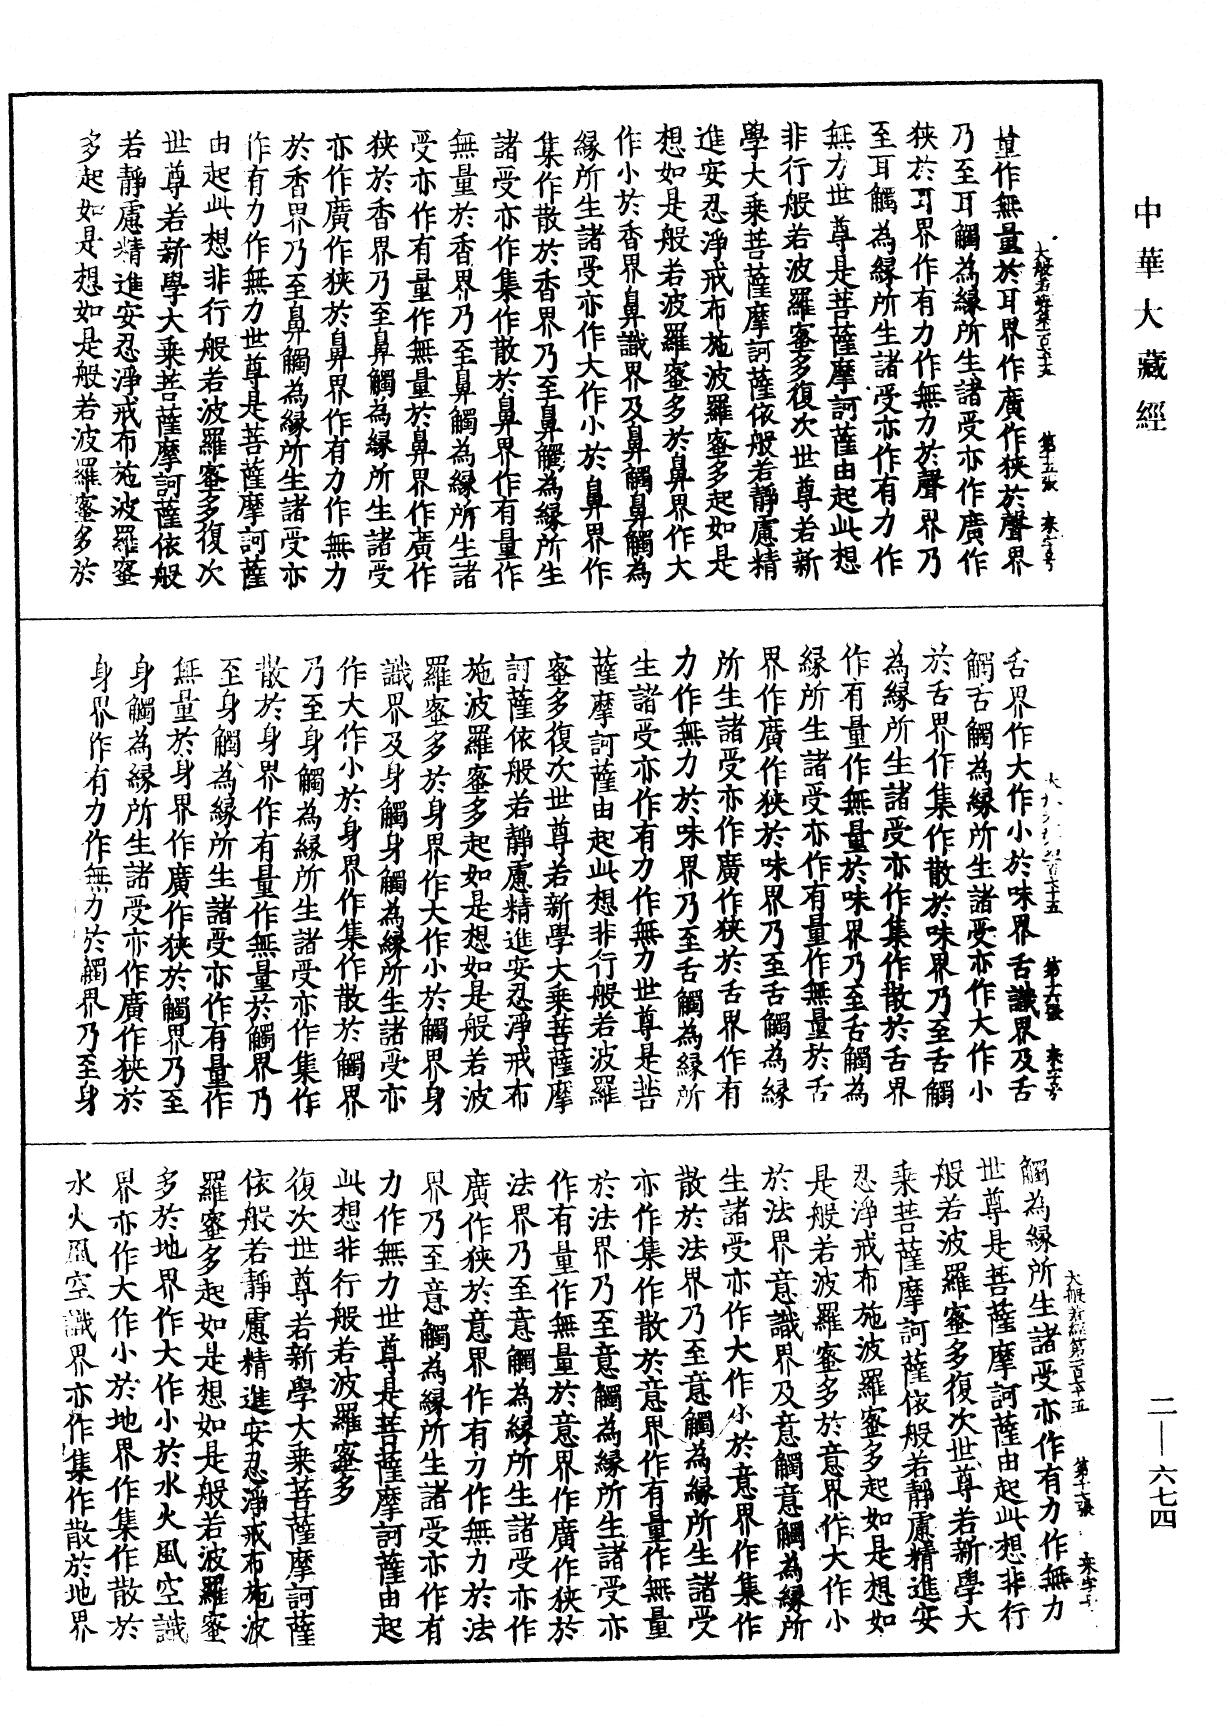 中華大藏經
量作無量於耳界作廣作狹於聲界
乃至耳觸為緣所生諸受亦作廣作
狹於耳界作有力作無力於聲界乃
至耳觸為緣所生諸受亦作有力作
無力世尊是菩薩摩訶薩由起此想
非行般若波羅蜜多復次世尊若新
學大乘菩薩摩訶薩依般若靜慮精
進安忍淨戒布施波羅蜜多起如是
想如是般若波羅蜜多於鼻界作大
作小於香界鼻識界及鼻觸鼻觸為
緣所生諸受亦作大作小於鼻界作
集作散於香界乃至鼻觸為緣所生
諸受亦作集作散於鼻界作有量作
無量於香界乃至鼻觸為緣所生諸
受亦作有量作無量於鼻界作廣作
狹於香界乃至鼻觸為緣所生諸受
亦作廣作狹於鼻界作有力作無力
於香界乃至鼻觸為緣所生諸受亦
作有力作無力世尊是菩薩摩訶薩
由起此想非行般若波羅蜜多復次
世尊若新學大乘菩薩摩訶薩依般
若靜慮精進安忍淨戒布施波羅蜜
多起如是想如是般若波羅蜜多於
第十五張 來字号
舌界作大作小於味界舌識界及舌
觸舌觸為緣所生諸受亦作大作小
於舌界作集作散於味界乃至舌觸
為緣所生諸受亦作集作散於舌界
作有量作無量於味界乃至舌觸為
緣所生諸受亦作有量作無量於舌
界作廣作狹於味界乃至舌觸為緣
所生諸受亦作廣作狹於舌界作有
力作無力於味界乃至舌觸為緣所
生諸受亦作有力作無力世尊是菩
薩摩訶薩由起此想非行般若波羅
蜜多復次世尊若新學大乘菩薩摩
訶薩依般若靜慮精進安忍淨戒布
施波羅蜜多起如是想如是般若波
羅蜜多於身界作大作小於觸界身
識界及身觸身觸為緣所生諸受亦
作大作小於身界作集作散於觸界
乃至身觸為緣所生諸受亦作集作
散於身界作有量作無量於觸界乃
至身觸為緣所生諸受亦作有量作
無量於身界作廣作狹於觸界乃至
身觸為緣所生諸受亦作廣作狹於
身界作有力作無力於觸界乃至身
第十六張 來字号
觸為緣所生諸受亦作有力作無力
世尊是菩薩摩訶薩由起此想非行
般若波羅蜜多復次世尊若新學大
乘菩薩摩訶薩依般若靜慮精進安
忍淨戒布施波羅蜜多起如是想如
是般若波羅蜜多於意界作大作小
於法界意識界及意觸意觸為緣所
生諸受亦作大作小於意界作集作
散於法界乃至意觸為緣所生諸受
亦作集作散於意界作有量作無量
於法界乃至意觸為緣所生諸受亦
作有量作無量於意界作廣作狹於
法界乃至意觸為緣所生諸受亦作
廣作狹於意界作有力作無力於法
界乃至意觸為緣所生諸受亦作有
力作無力世尊是菩薩摩訶薩由起
此想非行般若波羅蜜多
復次世尊若新學大乘菩薩摩訶薩
依般若靜慮精進安忍淨戒布施波
羅蜜多起如是想如是般若波羅蜜
多於地界作大作小於水火風空識
界亦作大作小於地界作集作散於
水火風空識界亦作集作散於地界
第十七張 來字号
二—六七四